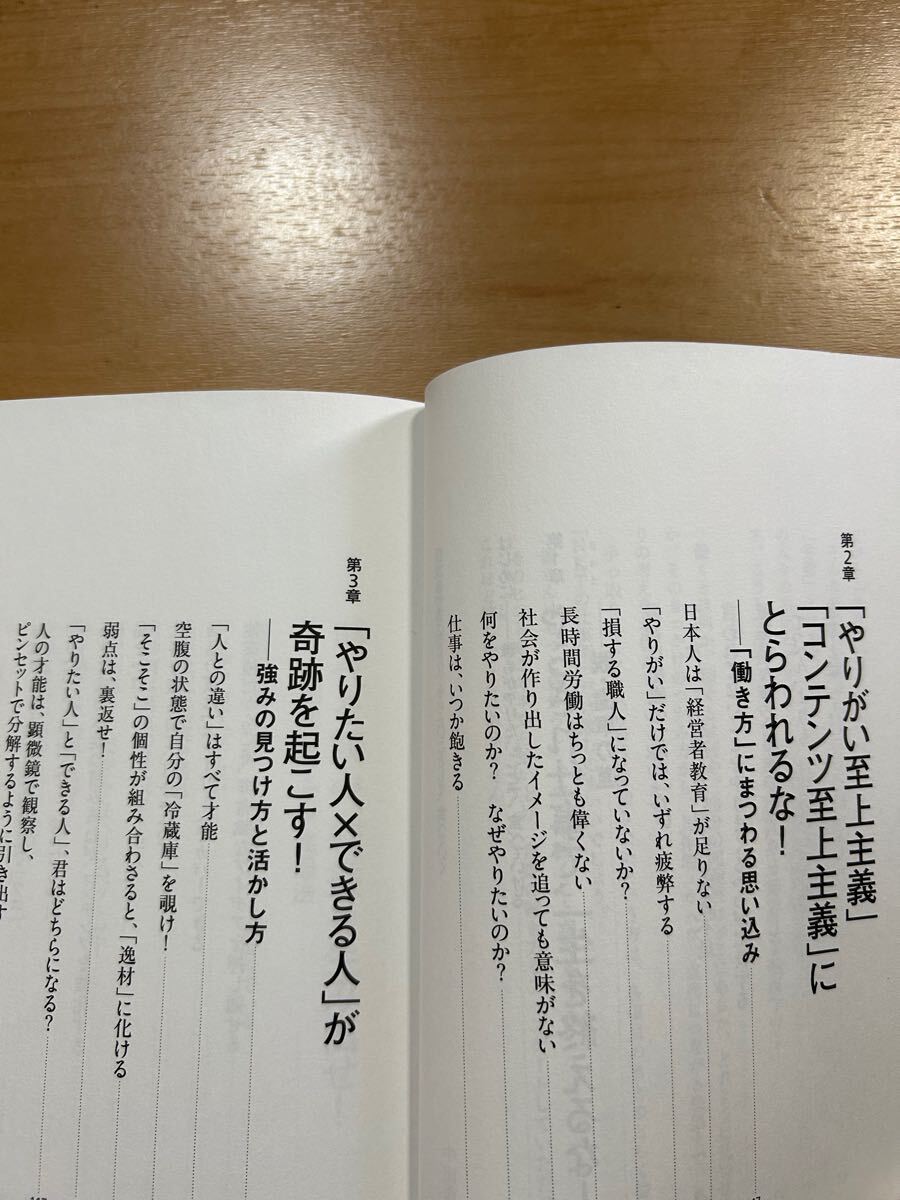 第2章
「やりがい至上主義」
「コンテンツ至上主義」に
とらわれるな！
──「働き方」にまつわる思い込み
日本人は「経営者教育」が足りない
「やりがい」だけでは、いずれ疲弊する
「損する職人」になっていないか？
長時間労働はちっとも偉くない
社会が作り出したイメージを追っても意味がない
何をやりたいのか？　なぜやりたいのか？
仕事は、いつか飽きる
第3章
「やりたい人×できる人」が
奇跡を起こす！
──強みの見つけ方と活かし方
「人との違い」はすべて才能
空腹の状態で自分の「冷蔵庫」を覗け！
「そこそこ」の個性が組み合わさると、「逸材」に化ける
弱点は、裏返せ！
「やりたい人」と「できる人」、君はどちらになる？
人の才能は、顕微鏡で観察し、
ピンセットで分解するように引き出す